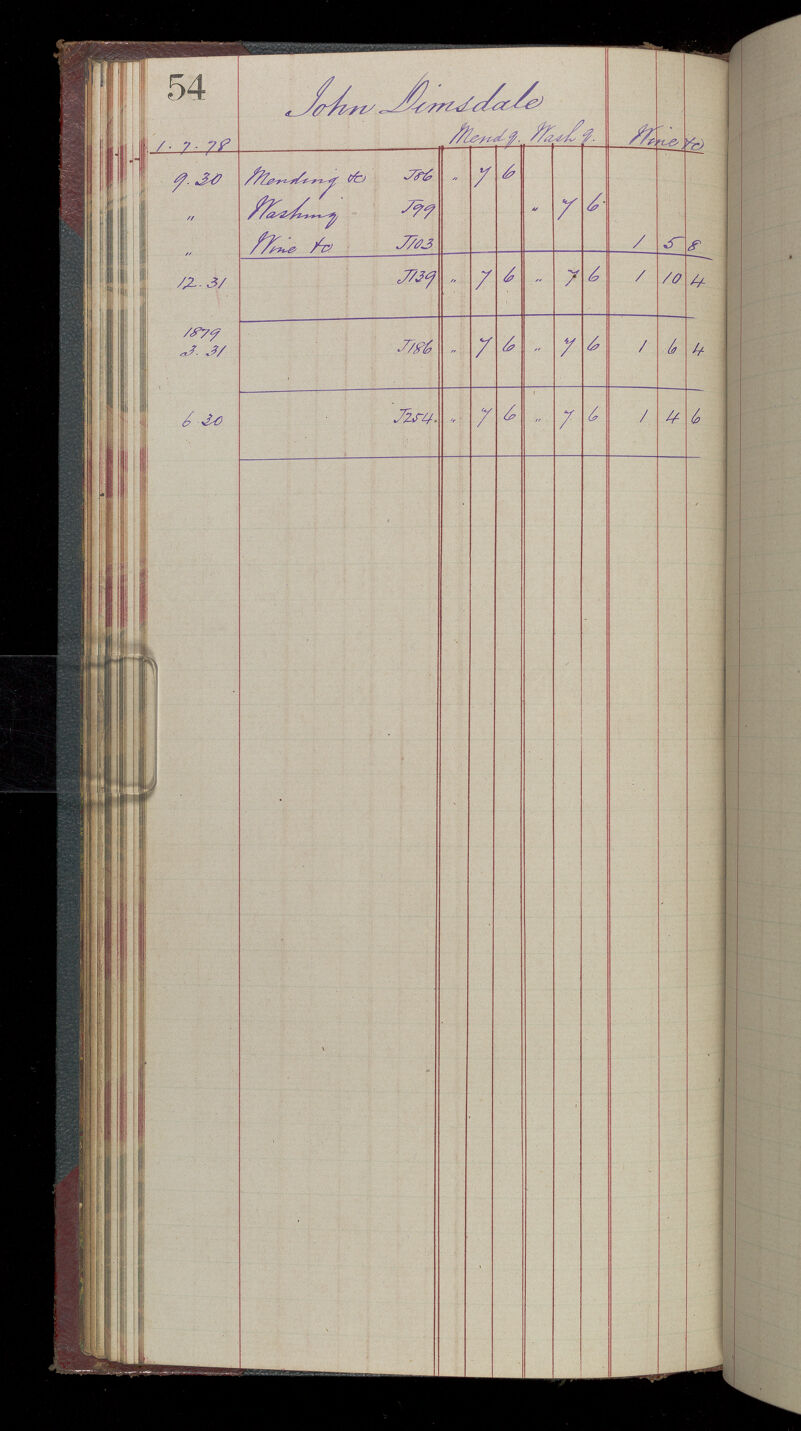 54
John Dimsdale
1. 7. 78 Mendg. Washg. Wine &c
9. 30 Mending &c J86 " 7 6
" Washing J99 " 7 6
" Wine &c J103 1 5 8
12. 31 J139 " 7 6 " 7 6 1 10 4
1879
3. 31 J186 " 7 6 " 7 6 1 6 4
6 30 J254. " 7 6 " 7 6 1 4 6